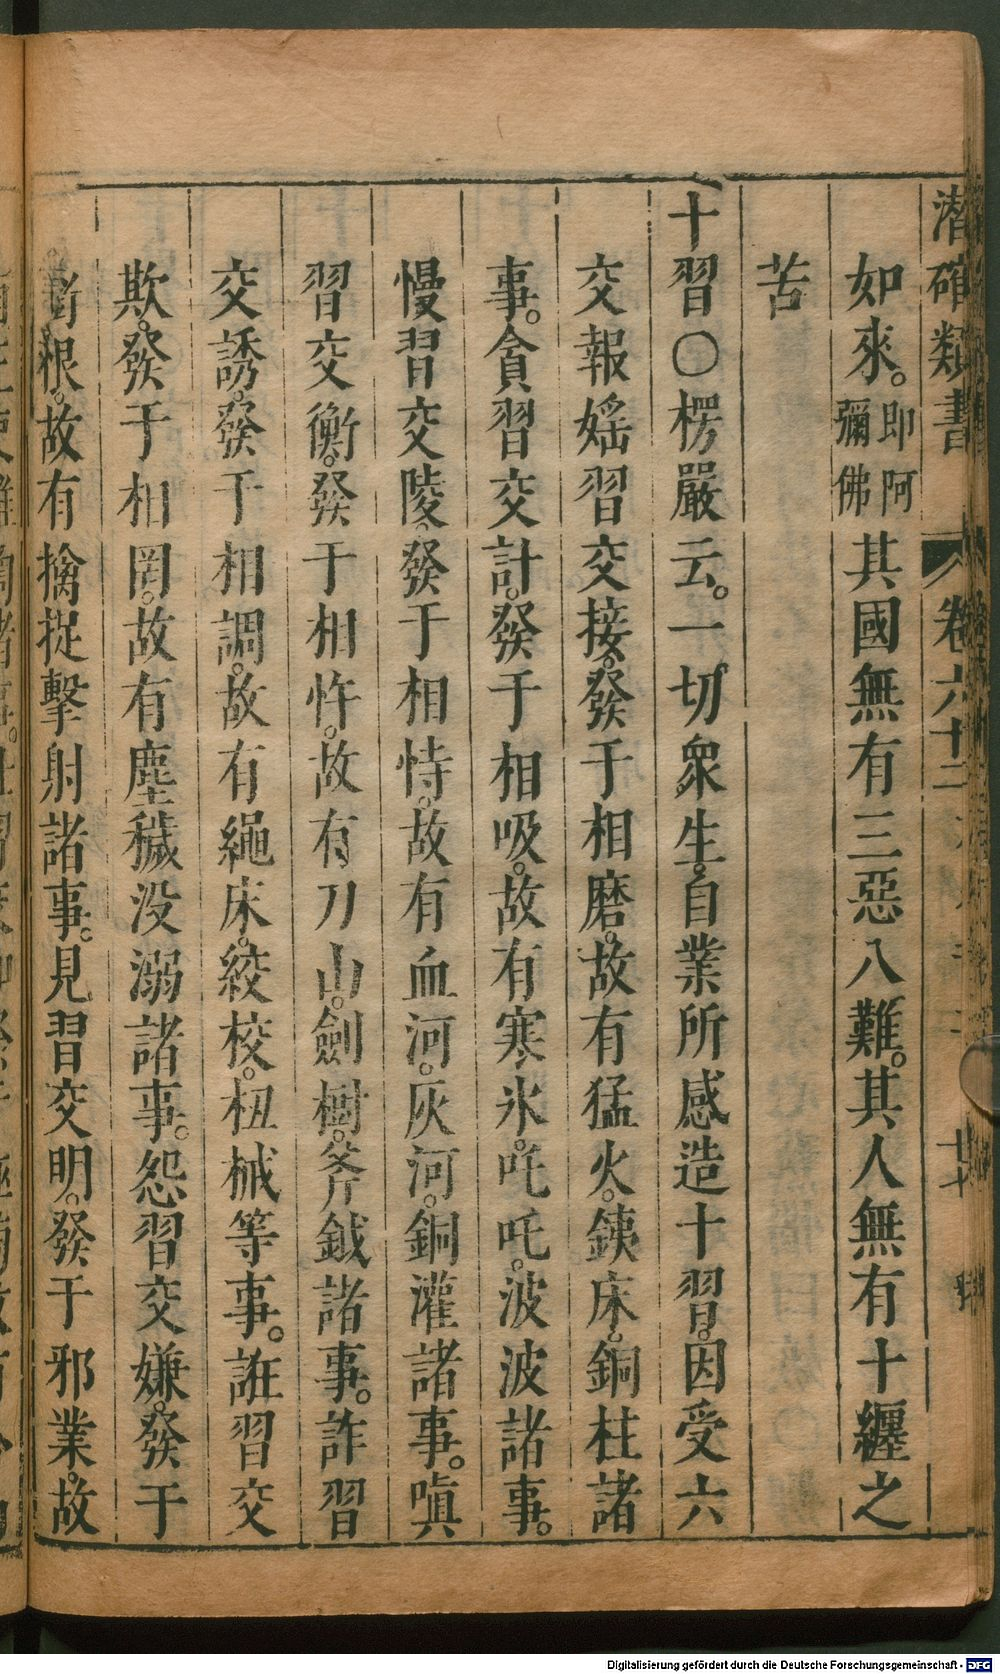 潛確類書 卷六十二
如來。即阿彌佛其國無有三惡八難。其人無有十纏之
苦
十習〇楞嚴云。一切衆生。自業所感造十習。因受六
交報婬習交接。發于相磨。故有猛火。鐵床。銅柱諸
事。貪習交計。發于相吸。故有寒氷。吒吒。波波諸事。
慢習交陵。發于相恃。故有血河。灰河。銅灌諸事。嗔
習交衡。發于相忤。故有刀山。劍樹。斧鉞諸事。詐習
交誘。發于相調。故有繩床。絞校。杻械等事。誑習交
欺。發于相罔。故有塵穢没溺諸事。怨習交嫌。發于
銜根。故有擒捉擊射諸事。見習交明。發于邪業。故
Digitalisierung gefördert durch die Deutsche Forschungsgemeinschaft - DFG